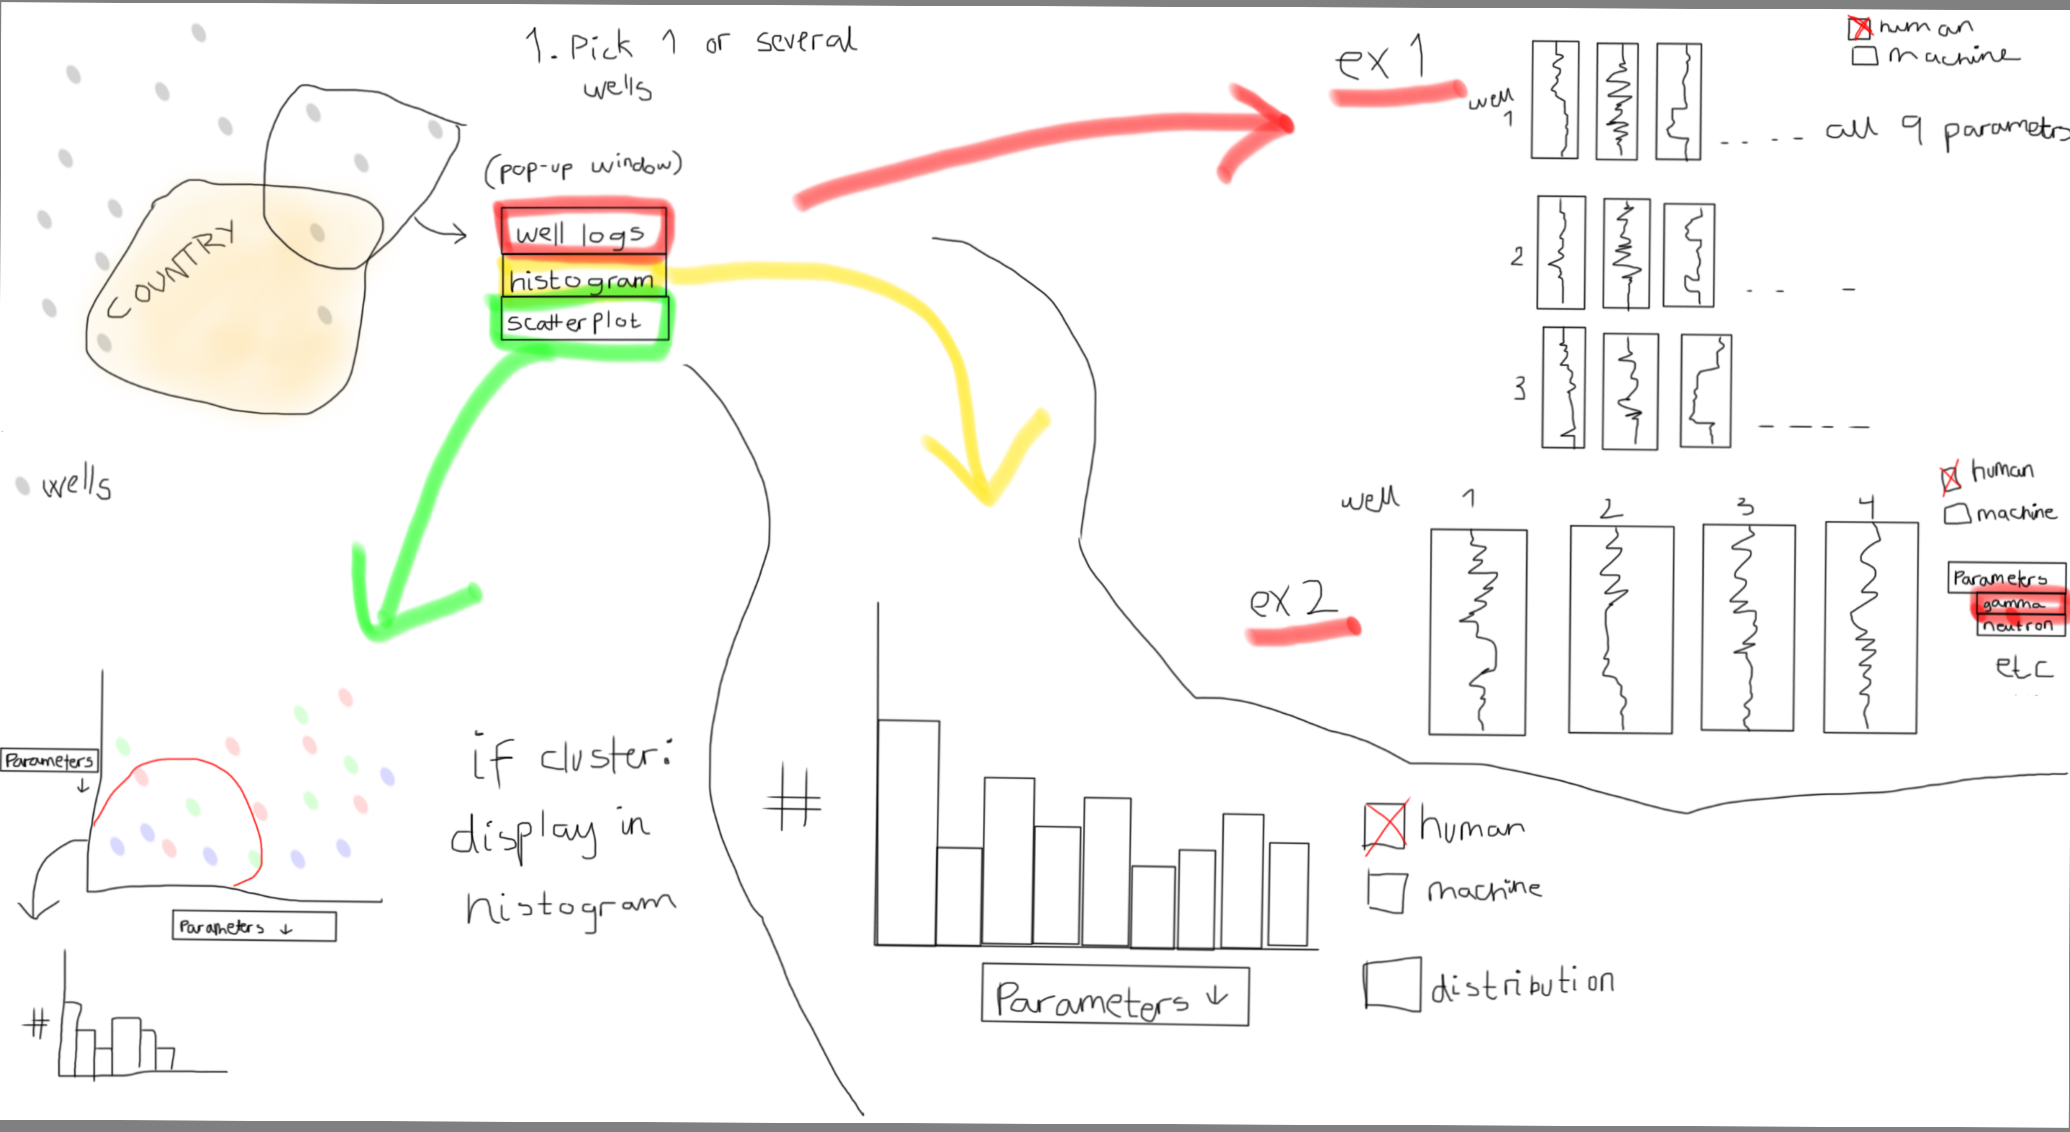 1. Pick 1 or several
wells
(pop-up window)
well logs
histogram
scatterplot
COUNTRY
wells
ex 1
human
machine
well
1
- - - - all 9 parametrs
2
3
well 1 2 3 4
human
machine
ex 2
Parameters
gamma
neutron
etc
Parameters ↓
Parameters ↓
if cluster:
display in
histogram
#
#
Parameters ↓
human
machine
distribution